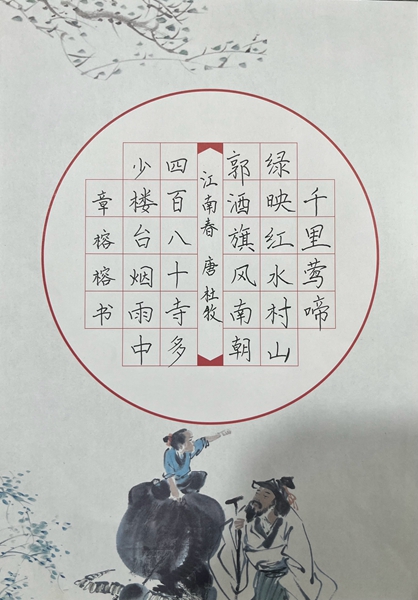 千里莺啼
绿映红水村山
郭酒旗风南朝
江南春 唐 杜牧
四百八十寺多
少楼台烟雨中
章榕榕书